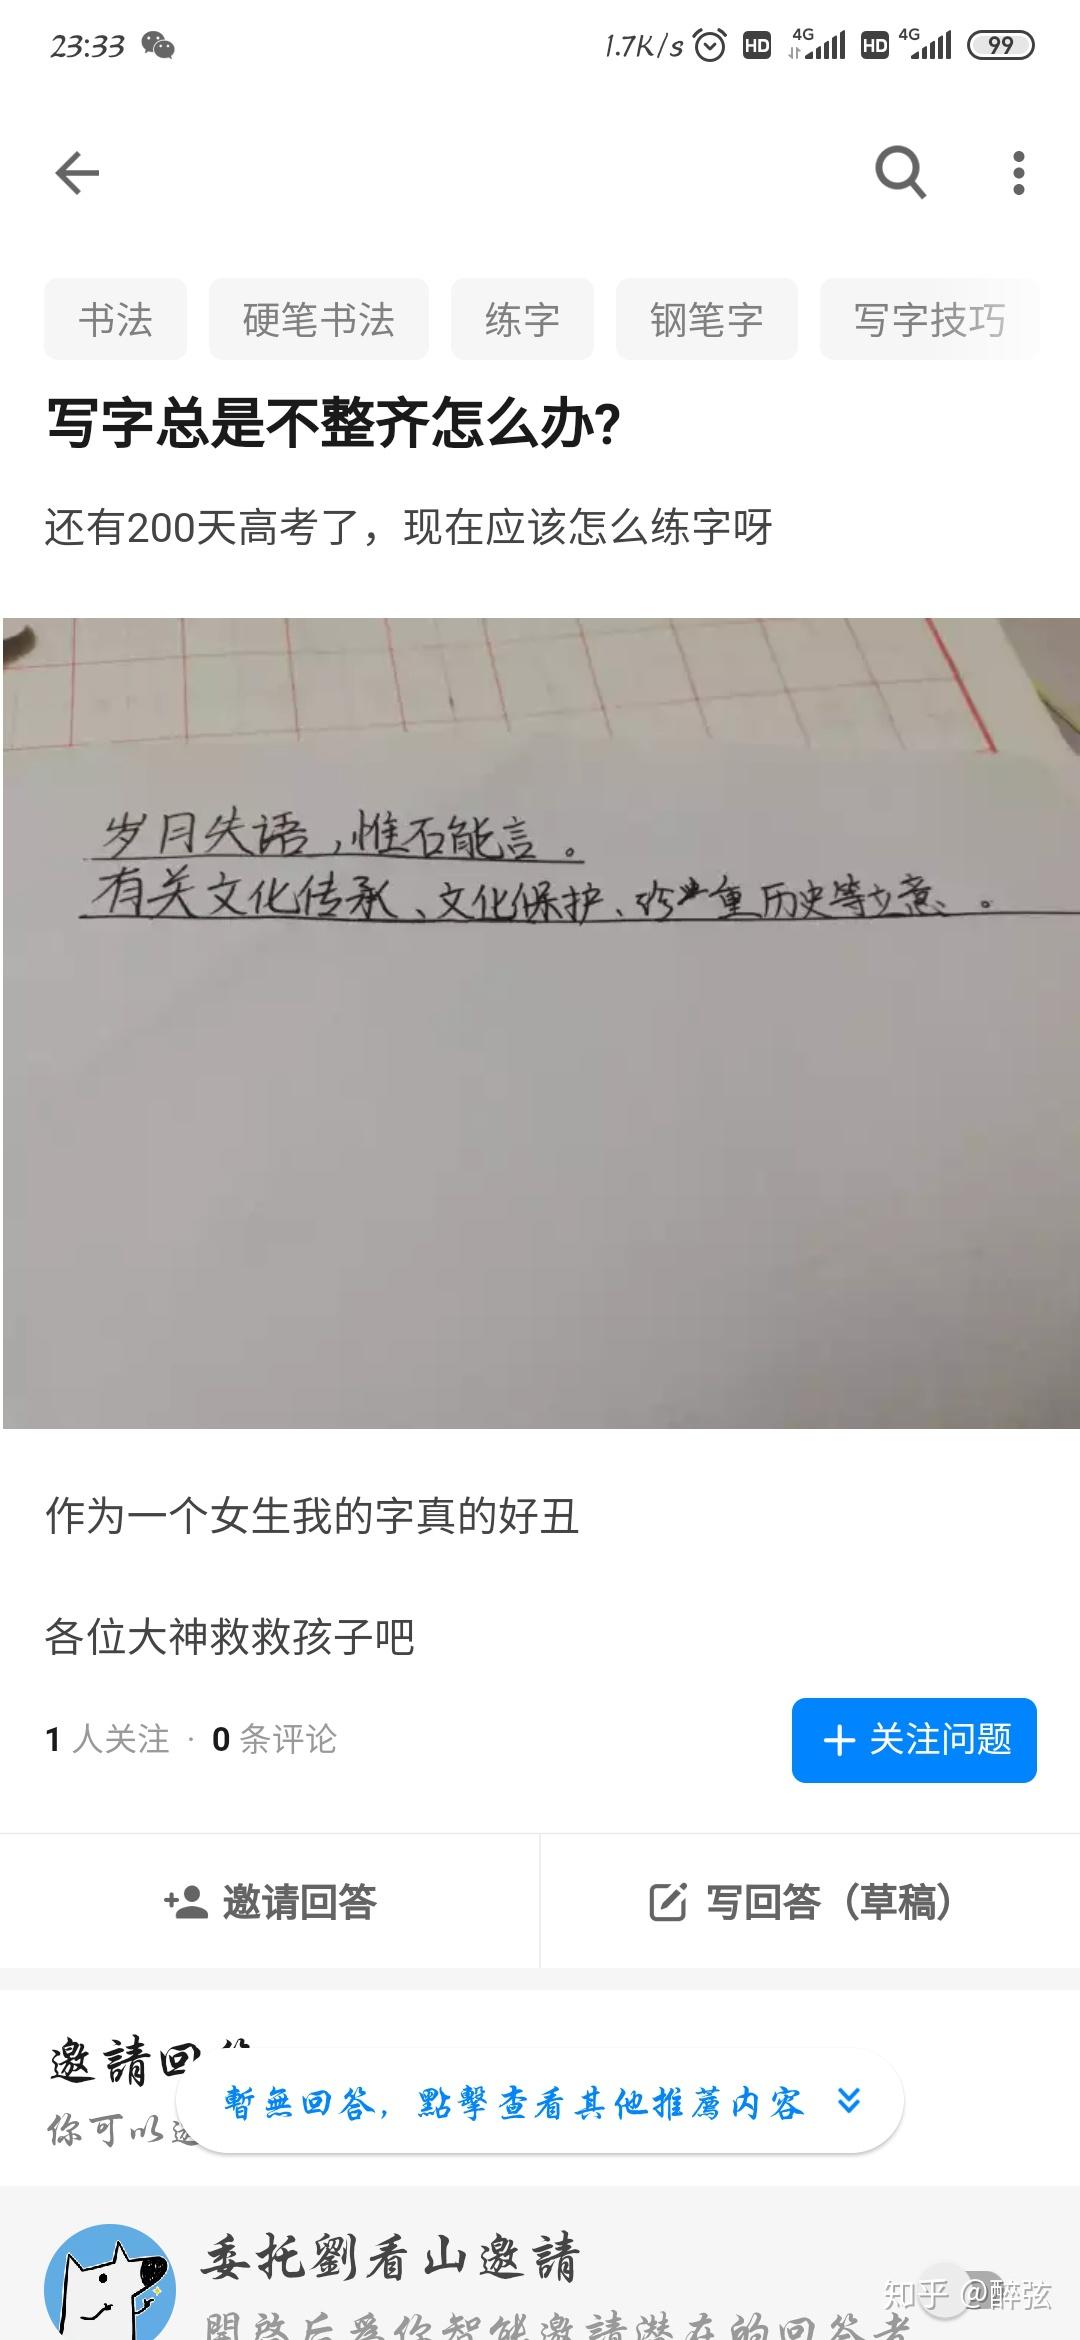 23:33 1.7K/s HD 4G HD 4G 99
书法 硬笔书法 练字 钢笔字 写字技巧
写字总是不整齐怎么办?
还有200天高考了，现在应该怎么练字呀
岁月失语，惟石能言。
有关文化传承、文化保护、珍重历史等立意。
作为一个女生我的字真的好丑
各位大神救救孩子吧
1 人关注 · 0 条评论
+ 关注问题
邀请回答 写回答（草稿）
邀請回答
暫無回答，點擊查看其他推薦内容
你可以邀
委托劉看山邀請
開啓后爲你智能邀請潜在的回答者
知乎 @醉弦